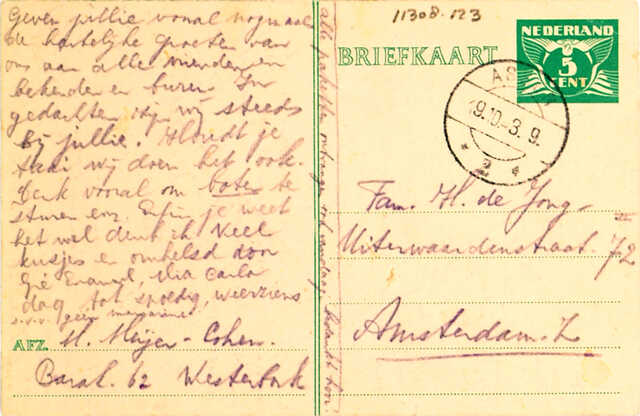 Geven jullie vooral nogmaals
de hartelijke groeten van
ons aan alle vrienden en
bekenden en buren. In
gedachten zijn wij steeds
bij jullie. Houdt je
taai wij doen het ook.
Denk vooral om boter te
sturen enz. Enfin je weet
het wel denk ik. Veel
kusjes en omhelsd door
Gé Emanuel, Mia Carla
dag tot spoedig weerziens
geen margarine
AFZ. M. Meijer-Cohen.
Barak 62 Westerbork
alle pakketten ontvangen tot vandaag
11308.123
BRIEFKAART
NEDERLAND
5
CENT
AS
19.10-3.9.
2
Fam. H. de Jong
Uiterwaardenstraat 72
Amsterdam-Z